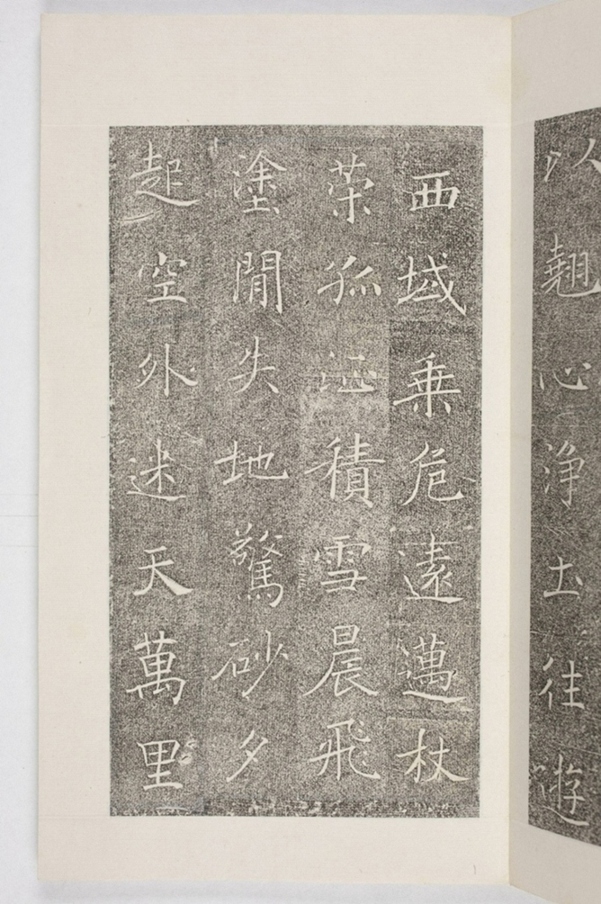 以翹心淨土往遊
西域乗危遠邁杖
策孤征積雪晨飛
塗閒失地驚砂夕
起空外迷天萬里